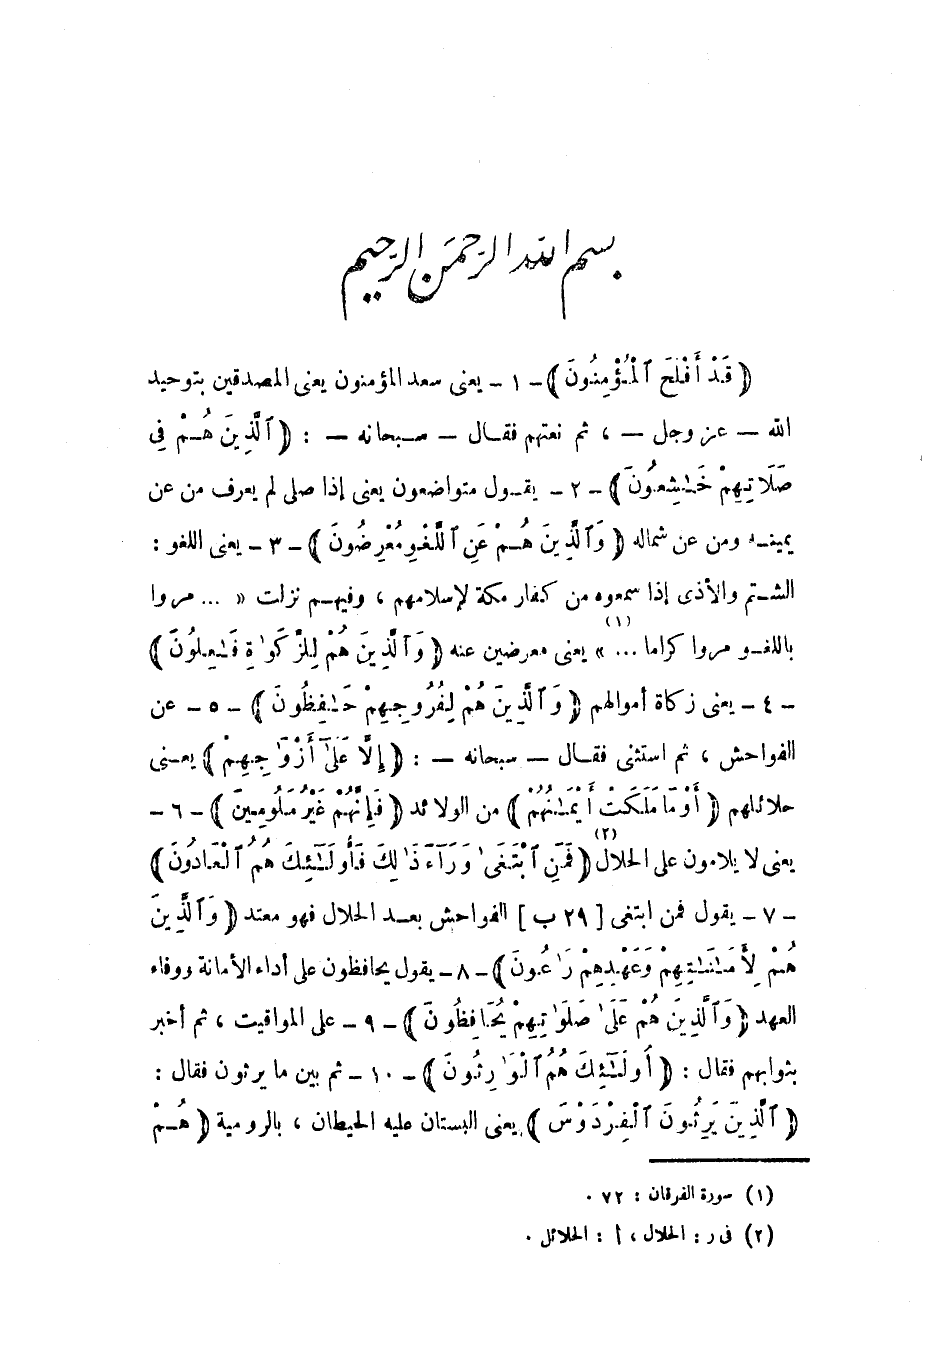 بسم الله الرحمن الرحيم
﴿ قَدْ أَفْلَحَ ٱلْمُؤْمِنُونَ ﴾ - ١ - يعنى سعد المؤمنون يعنى المصدقين بتوحيد
الله — عز وجل — ، ثم نعتهم فقـال — سبحانه — : ﴿ ٱلَّذِينَ هُـمْ فِى
صَلَاتِهِمْ خَـٰشِعُونَ ﴾ - ٢ - يقـول متواضعون يعنى إذا صلى لم يعرف من عن
يمينـه ومن عن شماله ﴿ وَٱلَّذِينَ هُـمْ عَنِ ٱللَّغْوِ مُعْرِضُونَ ﴾ - ٣ - يعنى اللغو :
الشـتم والأذى إذا سمعوه من كفار مكة لإسلامهم ، وفيهـم نزلت « ... مروا
باللغـو مروا كراما ... »(١) يعنى معرضين عنه ﴿ وَٱلَّذِينَ هُمْ لِلزَّكَوٰةِ فَـٰعِلُونَ ﴾
- ٤ - يعنى زكاة أموالهم ﴿ وَٱلَّذِينَ هُمْ لِفُرُوجِهِمْ حَـٰفِظُونَ ﴾ - ٥ - عن
الفواحش ، ثم استثنى فقـال — سبحانه — : ﴿ إِلَّا عَلَىٰٓ أَزْوَٰجِهِمْ ﴾ يعـنى
حلائلهم ﴿ أَوْ مَا مَلَكَتْ أَيْمَـٰنُهُمْ ﴾ من الولائد ﴿ فَإِنَّهُمْ غَيْرُ مَلُومِينَ ﴾ - ٦ -
يعنى لا يلامون على الحلال(٢) ﴿ فَمَنِ ٱبْتَغَىٰ وَرَآءَ ذَٰلِكَ فَأُولَـٰٓئِكَ هُمُ ٱلْعَادُونَ ﴾
- ٧ - يقول فمن ابتغى [ ٢٩ ب ] الفواحش بعـد الحلال فهو معتد ﴿ وَٱلَّذِينَ
هُمْ لِأَمَـٰنَـٰتِهِمْ وَعَهْدِهِمْ رَٰعُونَ ﴾ - ٨ - يقول يحافظون على أداء الأمانة ووفاء
العهد ﴿ وَٱلَّذِينَ هُمْ عَلَىٰ صَلَوَٰتِهِمْ يُحَافِظُونَ ﴾ - ٩ - على المواقيت ، ثم أخبر
بثوابهم فقال : ﴿ أُولَـٰٓئِكَ هُمُ ٱلْوَٰرِثُونَ ﴾ - ١٠ - ثم بين ما يرثون فقال :
﴿ ٱلَّذِينَ يَرِثُونَ ٱلْفِرْدَوْسَ ﴾ يعنى البستان عليه الحيطان ، بالرومية ﴿ هُـمْ
(١) سورة الفرقان : ٧٢ .
(٢) فى ر : الحلال ، أ : الحلائل .